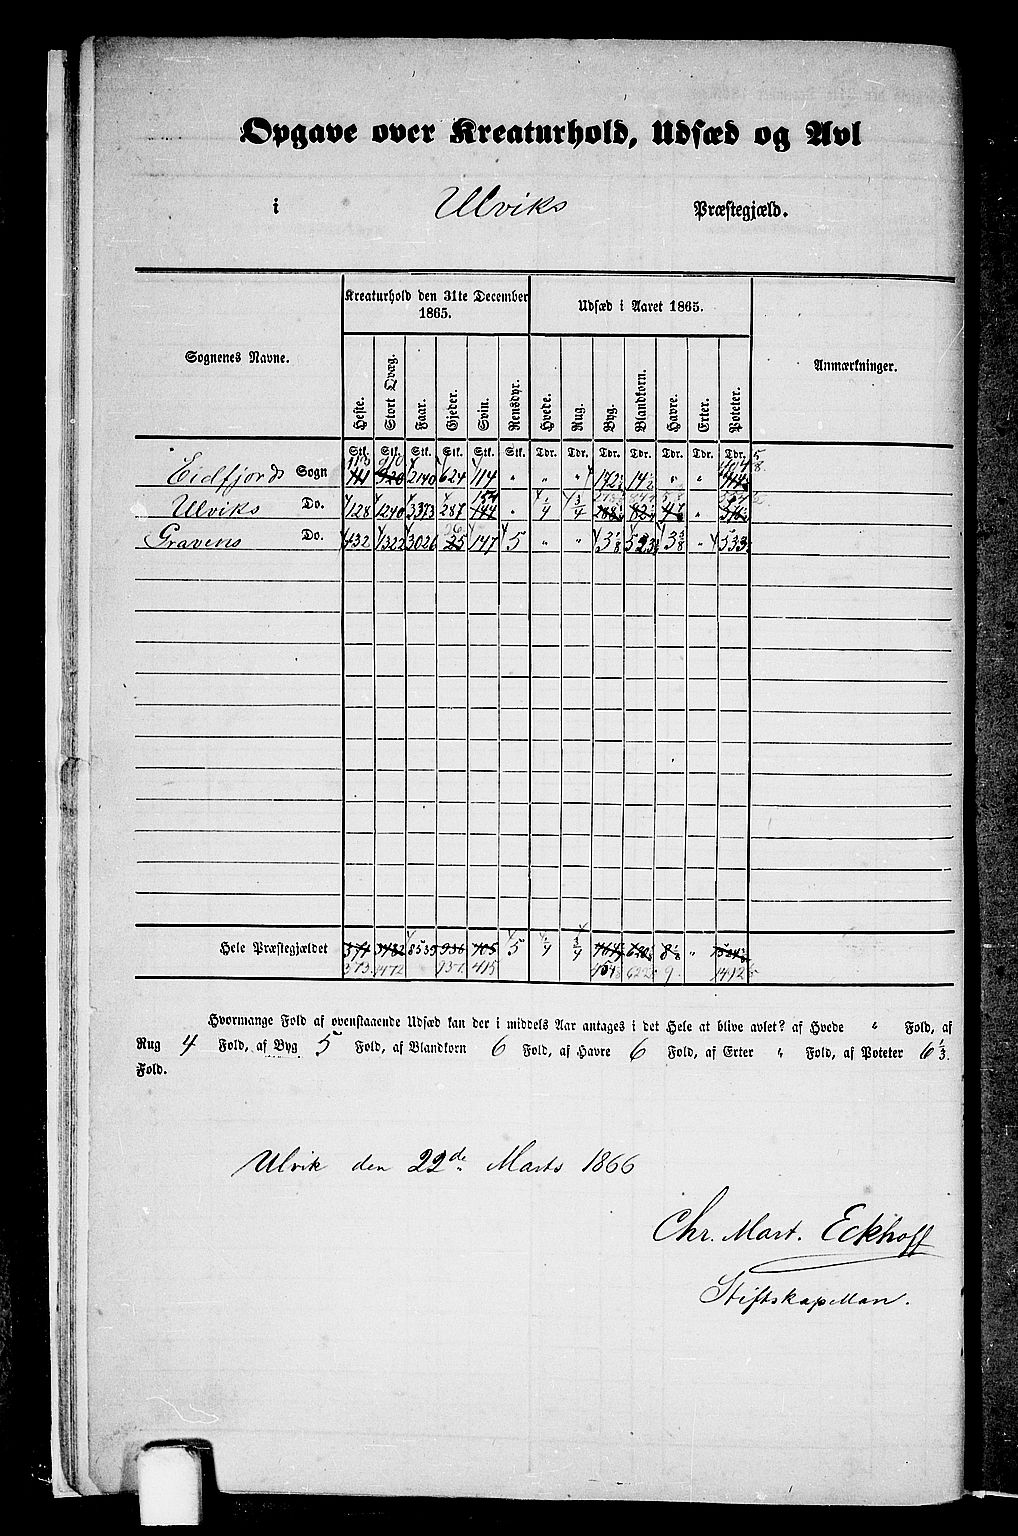 Opgave over Kreaturhold, Udsæd og Avl
i Ulviks Præstegjæld.
Sognenes Navne.
Kreaturhold den 31te December 1865.
Udsæd i Aaret 1865.
Anmærkninger.
Heste. Stort Qvæg. Faar. Gjeder. Svin. Rensdyr. Hvede. Rug. Byg. Blandkorn. Havre. Erter. Poteter.
Stk. Stk. Stk. Stk. Stk. Stk. Tdr. Tdr. Tdr. Tdr. Tdr. Tdr. Tdr.
Eidfjords Sogn 113 910 2140 624 114 " " " 172½ 14½ " "
Ulviks Do. 128 1240 3373 287 154 " ¼ ¾ "
Gravens Do. 132 1322 3026 25 147 5 " " 3⅛ 523 3⅜ " 533
Hele Præstegjældet 8539 5 ¼ ¾ "
373 415
Hvormange Fold af ovenstaaende Udsæd kan der i middels Aar antages i det Hele at blive avlet? af Hvede " Fold, af
Rug 4 Fold, af Byg 5 Fold, af Blandkorn 6 Fold, af Havre 6 Fold, af Erter " Fold, af Poteter 6⅓
Fold.
Ulvik den 22de Marts 1866
Chr. Mart. Eckhoff
Stiftskapellan.